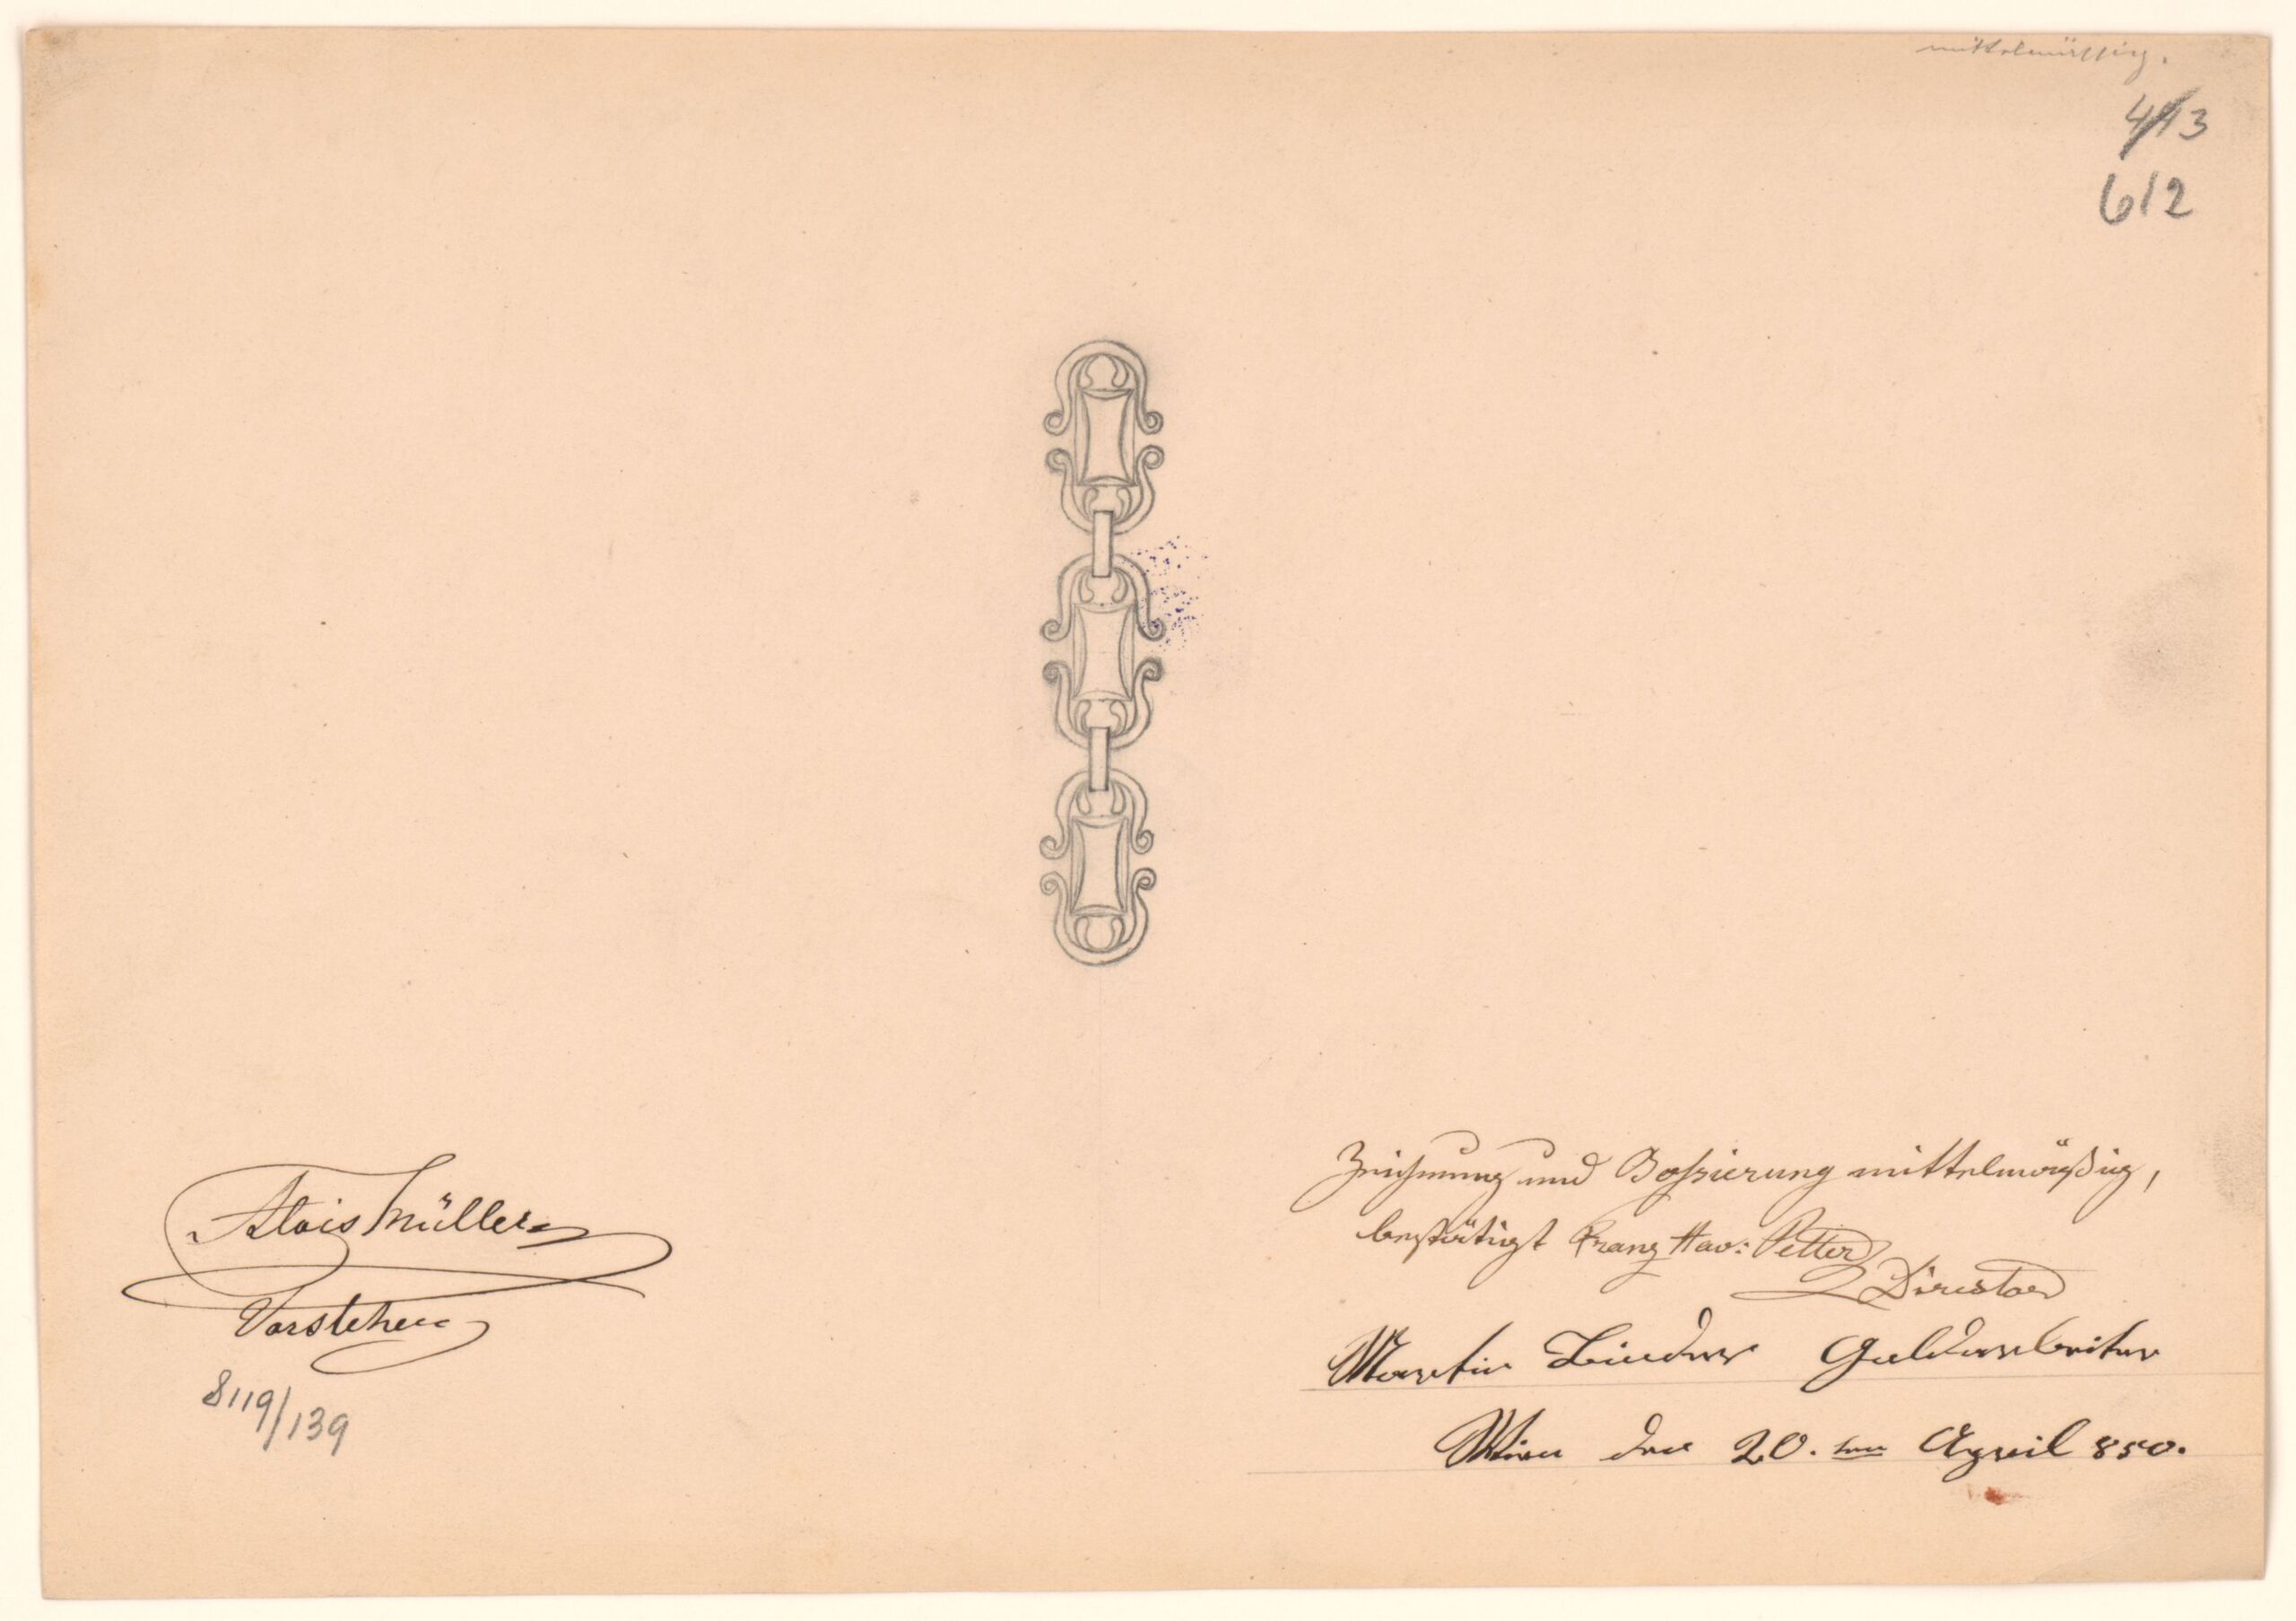 mittelmässig.
413
612
Zeichnung und Bossierung mittelmäßig,
bestätigt Franz Xav: Petter
Director
Alois Müller
Vorsteher
Martin Goldarbeiter
8119/139
Wien den 20. ten April 850.